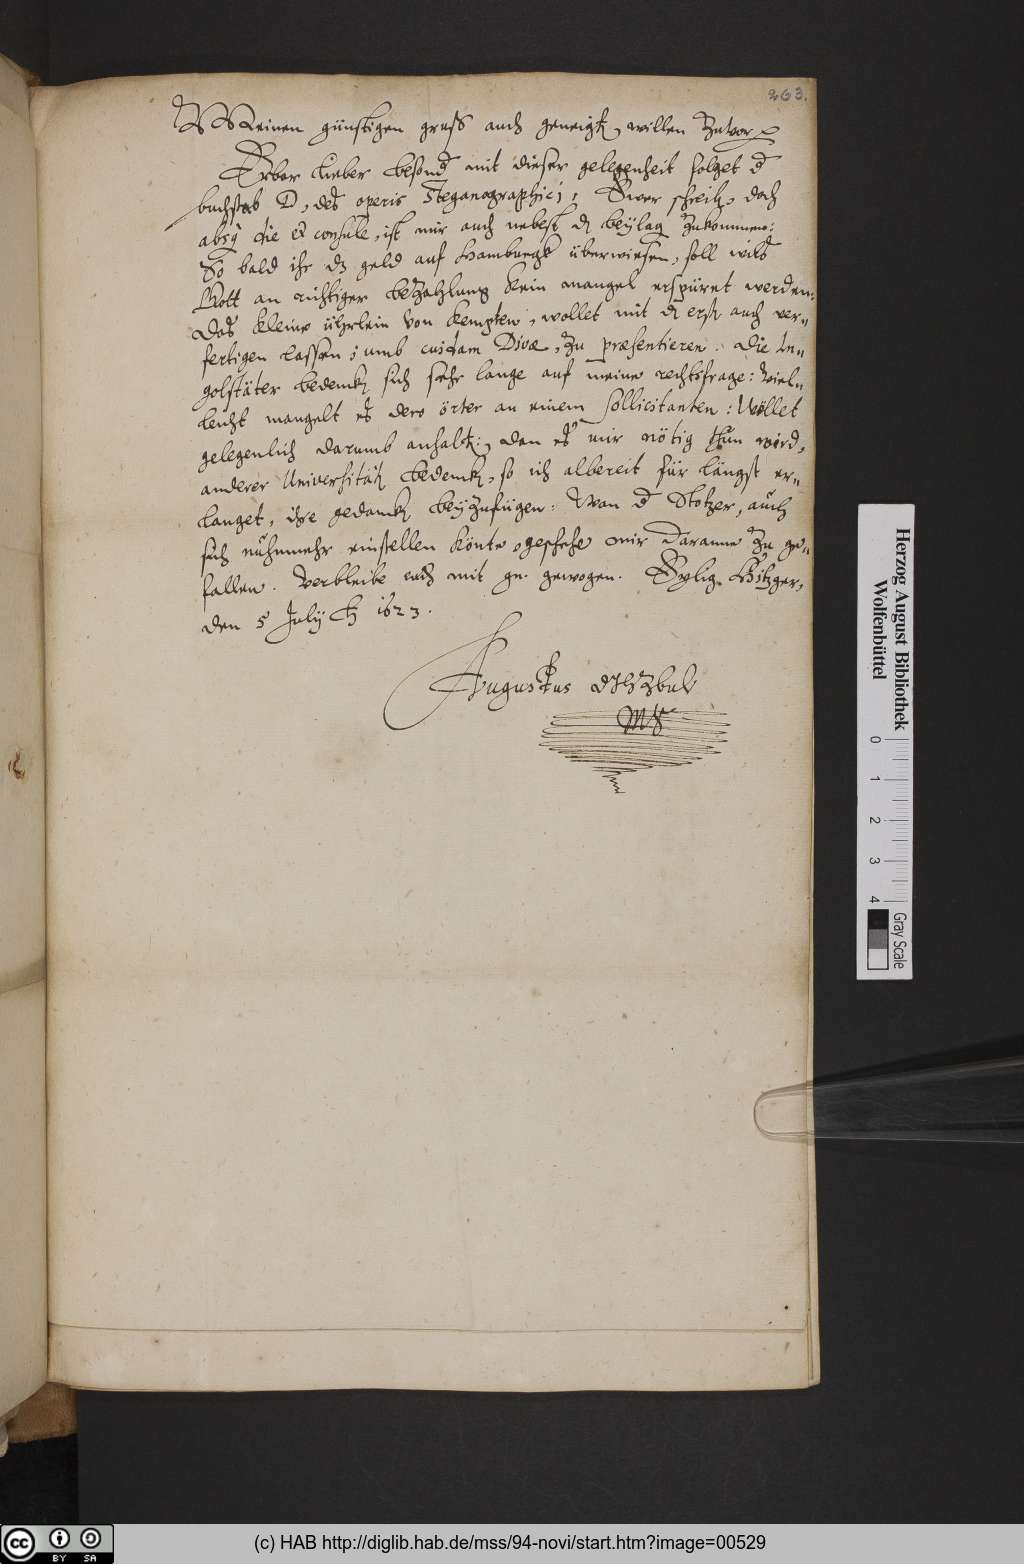 263.
Meinen günstigen gruß auch geneigt willen zuvor
Erbar lieber besond mit dieser gelegenheit folget d
buchstab D, des operis Steganographici, Ewer schreib, doch
absq die et consule, ist mir auch nebest dz beylag zukommen:
So bald ihr dz geld auf Hamburgk überwiesen, soll wils
Gott an richtiger bezahlung kein mangel erspüret werden:
Das kleine ührlein von Kempten, wollet mit dz erst auch ver-
fertigen lassen; umb cuidam Divæ, zu præsentieren. Die In-
golstäter bedenck sich sehr lange auf meine rechtsfrage: Viel-
leicht mangelt es dero örter an einem sollicitanten: Wollet
gelegenlich darumb anhalt: den es mir nötig thun wird,
anderer Universität bedenck, so ich albereit für längst er-
langet, ihre gedanck beyzufügen: Wan d Stotzer, auch
sich nuhnmehr einstellen könte, geschehe mir daranne zu ge-
fallen. Verbleibe euch mit gn. gewogen. Eylig. Hitzger,
den 5 July 1623.
Augustus
(c) HAB http://diglib.hab.de/mss/94-novi/start.htm?image=00529
Herzog August Bibliothek
Wolfenbüttel
0 1 2 3 4
Gray Scale
cc BY SA